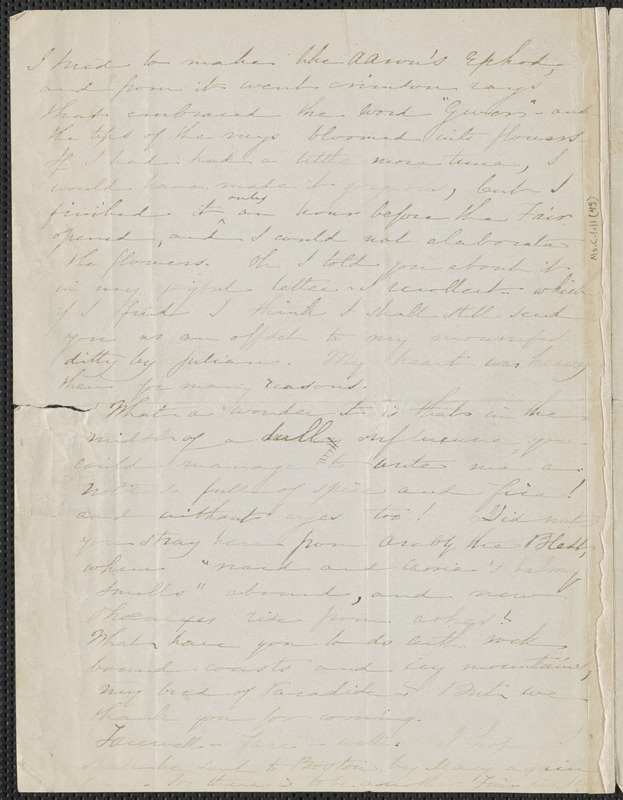 I tried to make like Aaron's Ephod,
and from it went crimson rays
that embraced the word "Given" - and
the tips of the rays bloomed into flowers.
If I had had a little more time, I
would have made it gorgeous, but I
only
finished it an hour before the Fair
opened, and I could not elaborate
the flowers. Oh I told you about it
in my joyful letter I recollect which
if I find I think I shall still send
you as an offset to my mournful
ditty by Julian. My heart was heavy
then for many reasons.
What a wonder it is that in the
midst of a dull influenza, you
could manage to write me a
note so full of spice and fire!
and without eyes too! Did not
you stray here from Araby the Blest,
where "nard and cassia's balmy
smells" abound, and new
Phoenixes rise from ashes?
What have you to do with rock
bound coasts and icy mountains,
my bird of Paradise? But we
thank you for coming.
Farewell - Fare - well. I hope
to Boston by Mary again
there is to be another Fair
Ms. C. 1. 11 (45)